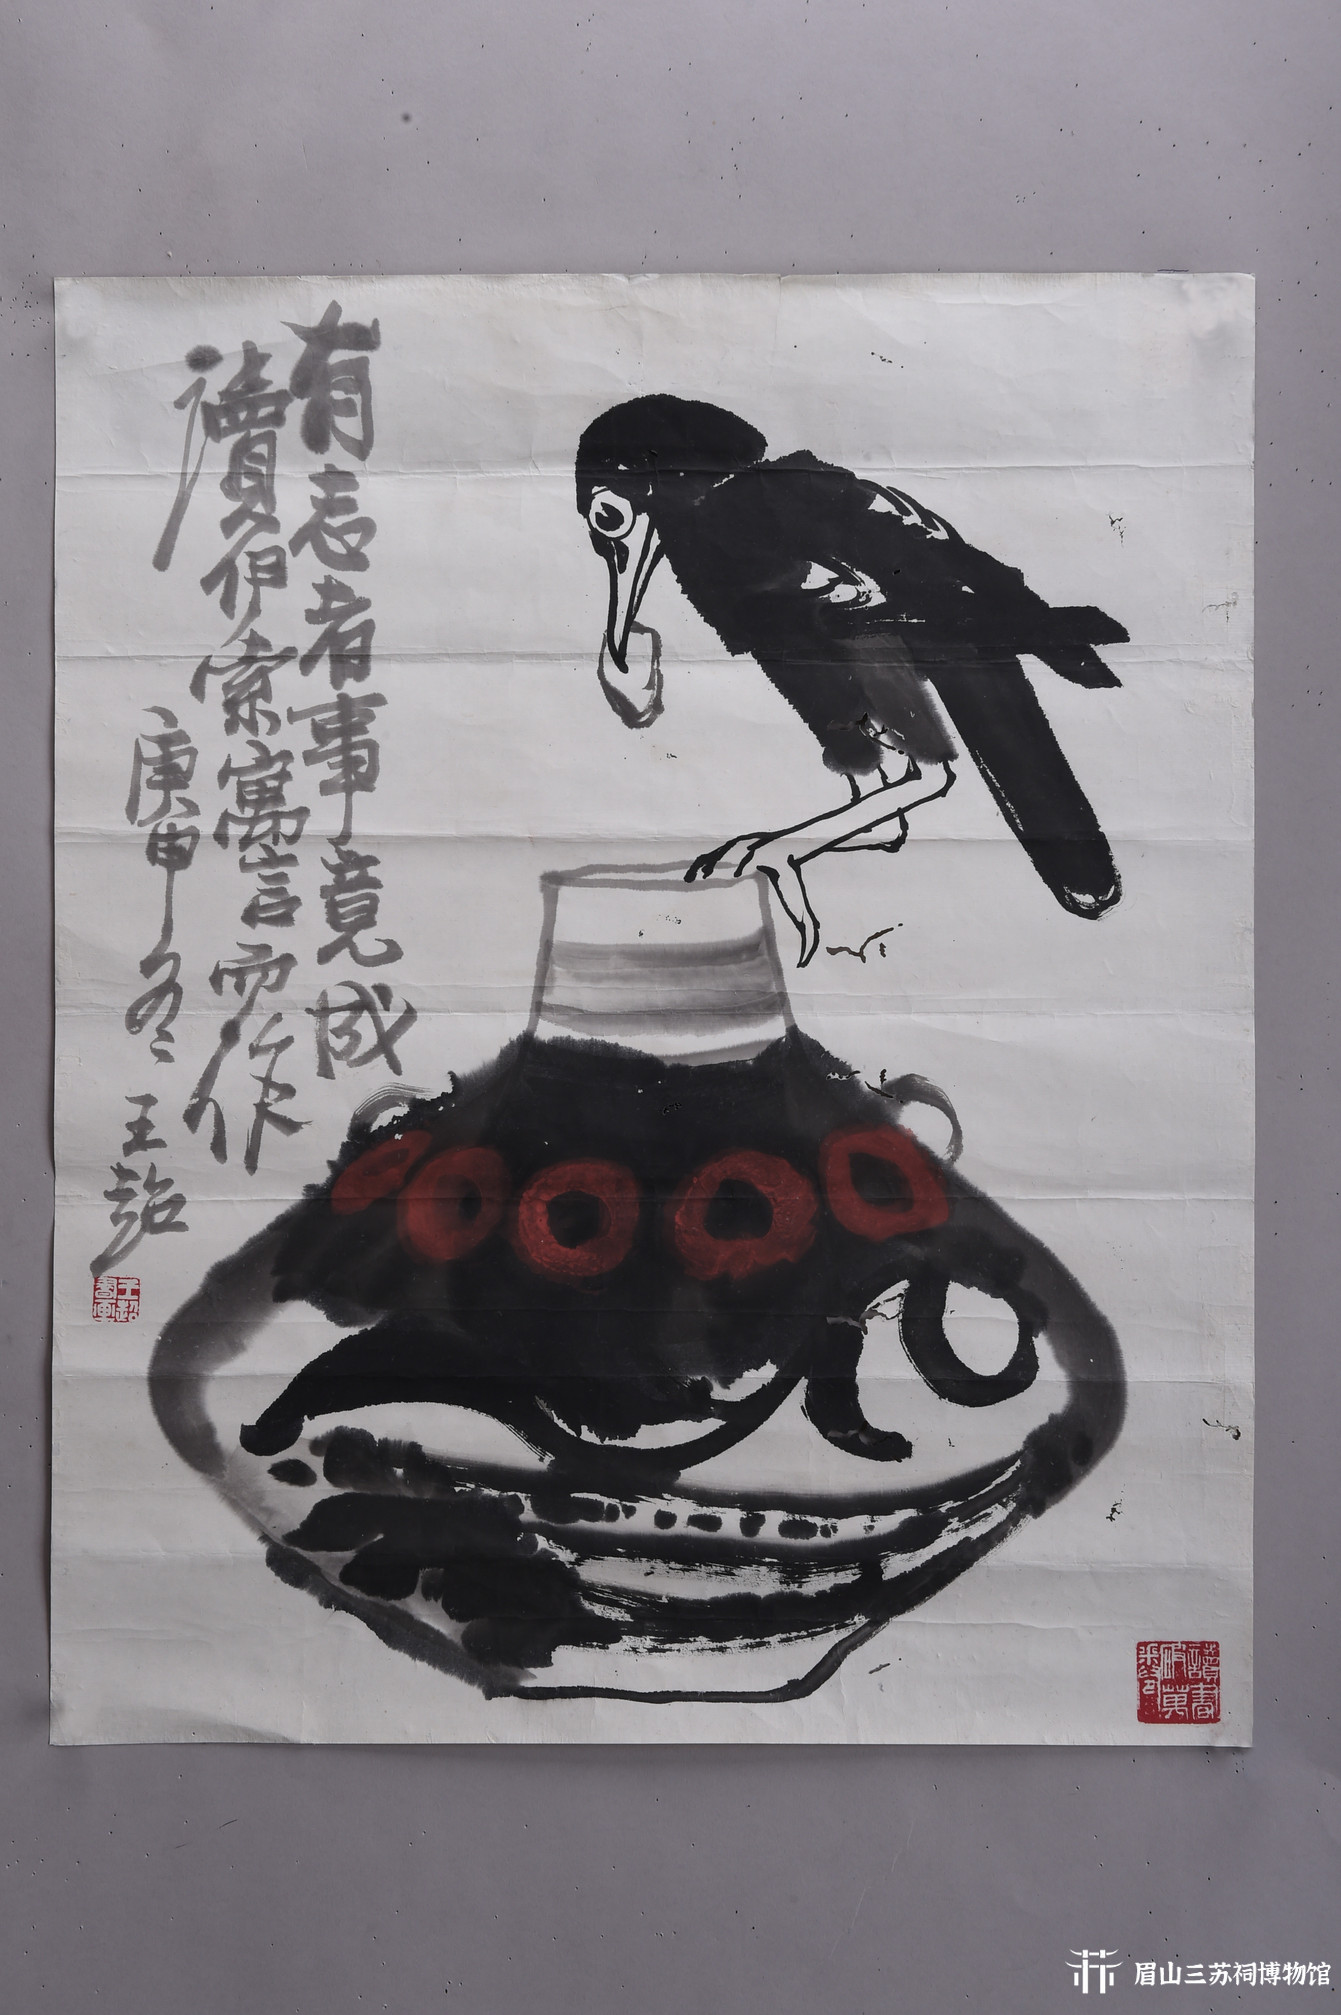 有志者事竟成
讀伊索寓言而作
庚申冬 王
讀書
破萬
眉山三苏祠博物馆